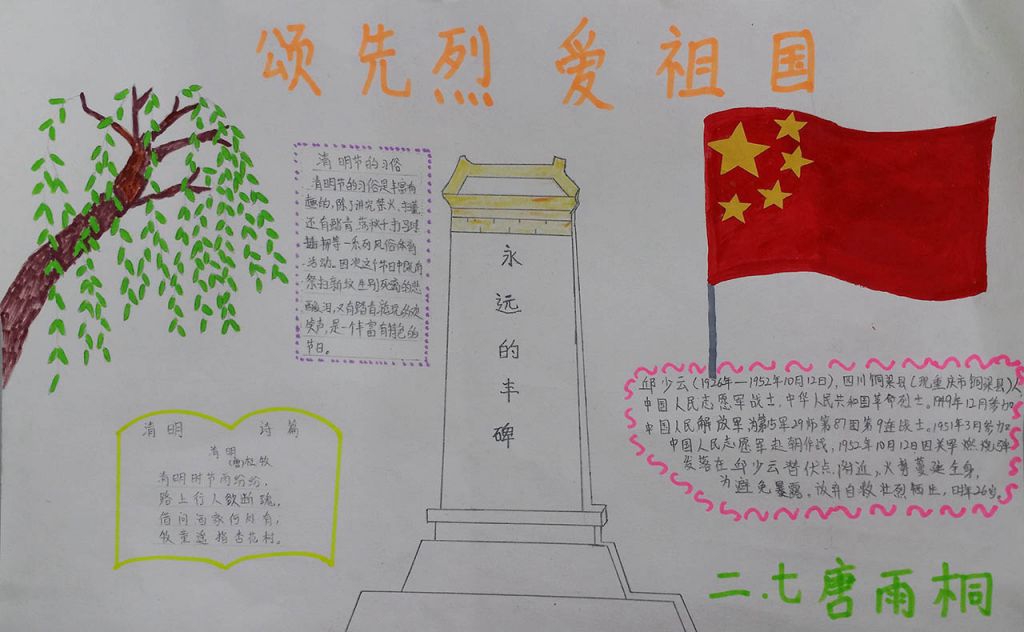 颂先烈 爱祖国
清明节的习俗
清明节的习俗是丰富有
趣的,除了讲究禁火、扫墓,
还有踏青、荡秋千、打马球
插柳等一系列风俗体育
活动。因次这个节日中既有
祭扫新坟生别死离的悲
酸泪,又有踏青游玩的欢
笑声,是一个富有特色的
节日。
永远的丰碑
邱少云(1926年—1952年10月12日),四川铜梁县(现重庆市铜梁县)人
中国人民志愿军战士,中华人民共和国革命烈士。1949年12月参加
中国人民解放军,为第15军29师第87团第9连战士。1951年3月参加
中国人民志愿军赴朝作战,1952年10月12日因美军燃烧弹
落在邱少云潜伏点附近,火势蔓延全身,
为避免暴露,放弃自救壮烈牺牲,时年26岁。
清明 诗篇
清明
唐杜牧
清明时节雨纷纷,
路上行人欲断魂,
借问酒家何处有,
牧童遥指杏花村。
二.七唐雨桐